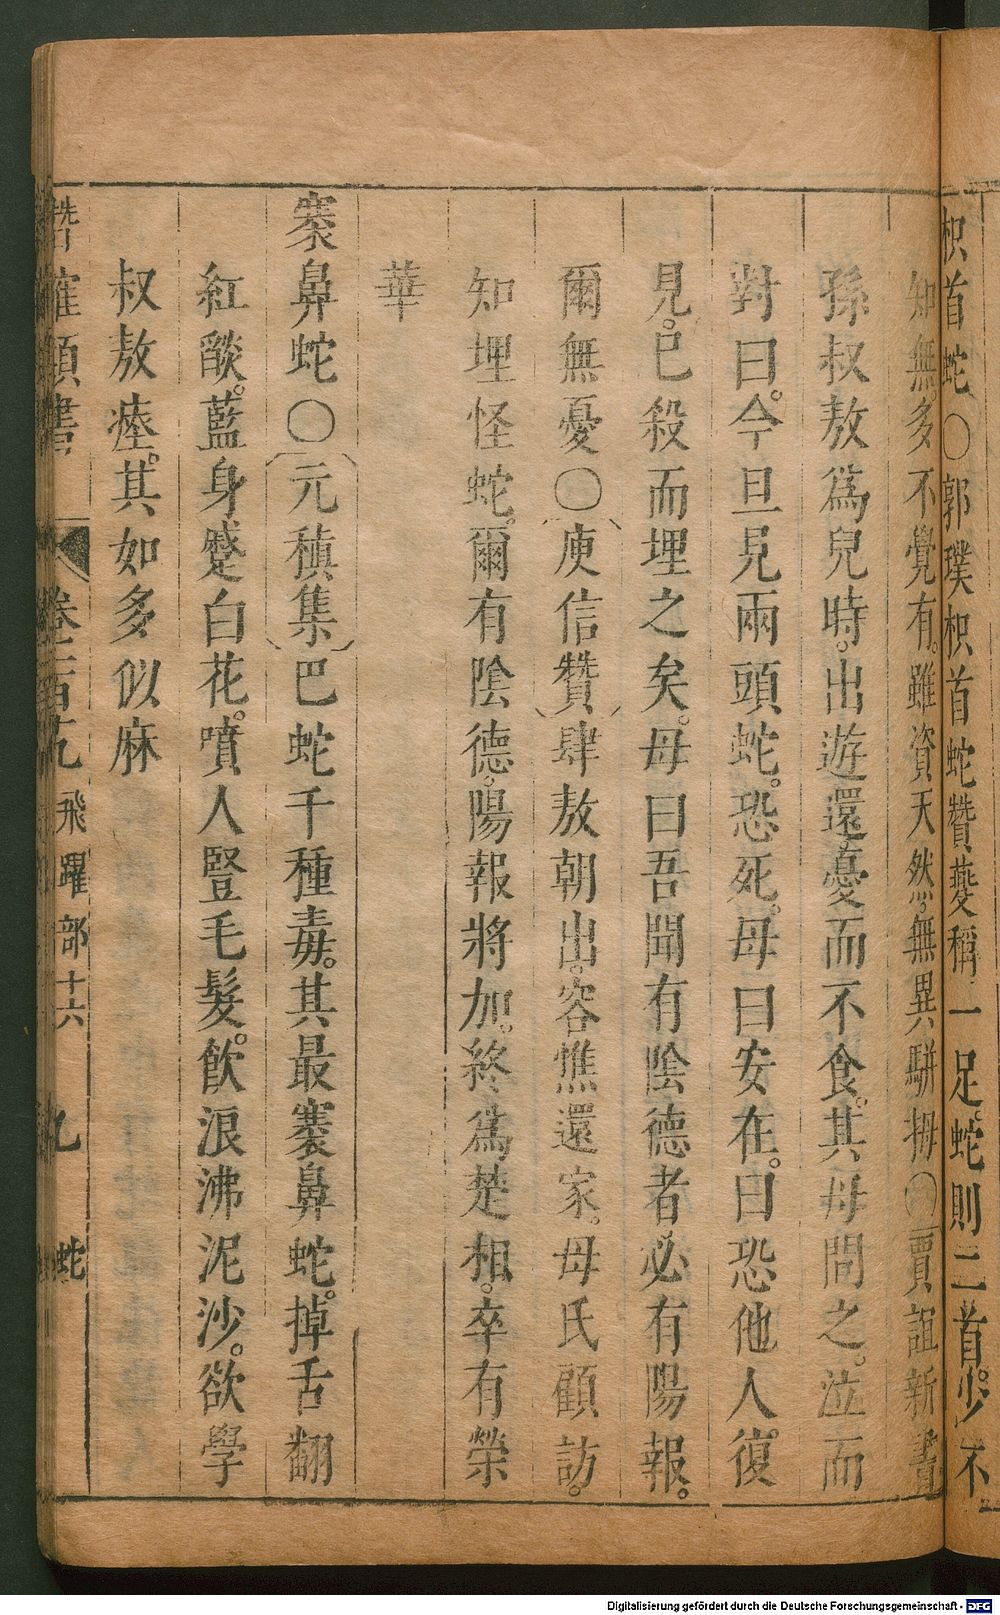 枳首蛇〇郭璞枳首蛇贊夔稱一足。蛇則二首。少不
知無多。不覺有。雖資天然。無異駢拇〇賈誼新書
孫叔敖爲兒時。出遊還。憂而不食。其母問之。泣而
對曰。今旦見兩頭蛇。恐死。母曰安在。曰恐他人復
見。已殺而埋之矣。母曰吾聞有陰德者。必有陽報。
爾無憂〇庾信贊肆敖朝出。容憔還家。母氏顧訪。
知埋怪蛇。爾有陰德。陽報將加。終爲楚相。卒有榮
華
褰鼻蛇〇元稹集巴蛇千種毒。其最褰鼻蛇。掉舌翻
紅燄。藍身蹙白花。噴人豎毛髮。飲浪沸泥沙。欲學
叔敖瘞。其如多似麻
潛確類書 卷一百九 飛躍部十六 九 蛇
Digitalisierung gefördert durch die Deutsche Forschungsgemeinschaft - DFG